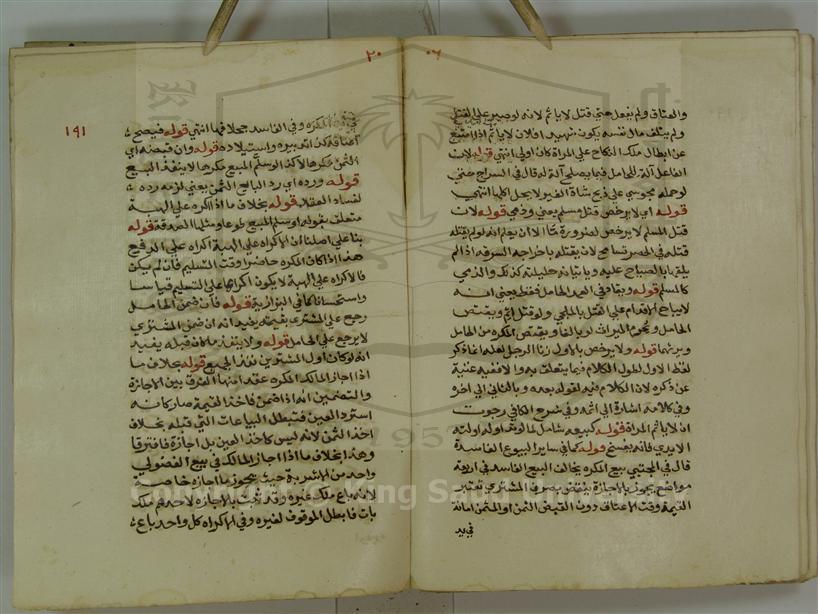 ٠٦
والعتاق ولم يفعل حتى قتل لا ياثم لانه لو صبر على القتل
ولم يتلف مال نفسه يكون شهيدا فلان لا ياثم اذا امتنع
عن ابطال ملك النكاح على المراة كان اولى انتهى قوله لان
الفاعل آلة للحامل فيما يصلح آلة له قال في السراج حتى
لو حمله مجوسي على ذبح شاة الغير لا يحل اكلها انتهى
قوله اي لا يرخص قتل مسلم يعني وذمي قوله لان
قتل المسلم لا يرخص لضرورة ما الا ان يعلم انه لو لم يقتله
قتله في الحصر تسامح لان يقتله باخراجه السرقة اذا لم
يلقها بالصياح عليه وباتيانه حليلته كذلك والذمي
كالمسلم قوله ويقاد في العمد الحامل فقط يعني انه
لا يباح الاقدام على القتل بالملجي ولو قتل اثم ويقتص
الحامل ويحرم الميراث لو بالغا ويقتص المكره من الحامل
ويرثهما قوله ولا يرخص بالاول زنا الرجل لعله انما ذكر
لفظ الاول لطول الكلام فيما يتعلق به والا ففيه غنية
عن ذكره لان الكلام فيه لقوله بعده وبالثاني الى اخره
وفي كلامه اشارة الى اثمه وفي شرح الكافي رجوت
ان لا ياثم المراة قوله كبيعه شامل لما لو تداوله اولته
الايدي فانه يفسخ قوله كما في ساير البيوع الفاسدة
قال في المجتبى بيع المكره يخالف البيع الفاسد في اربعة
مواضع يجوز بالاجازة ينتقض تصرف المشتري تعتبر
القيمة وقت الاعتاق دون القبض الثمن او المثمن امانة
في يد
٢٠
١٩١
المكره وفي الفاسد بخلافها انتهى قوله فيصح
اعتاقه كذا تدبيره واستيلاده قوله وان قبضه اي
الثمن مكرها لا كذا لو سلم المبيع مكرها لا ينفذ البيع
قوله ورده اي رد البائع الثمن يعني لزمه رده
لفساد العقد قوله بخلاف ما اذا اكره على الهبة
متعلق بقوله او سلم المبيع طوعا ومثلها الصدقة قوله
بنا على اصلنا ان الاكراه على الهبة اكراه على الدفع
هذا اذا كان المكره حاضرا وقت التسليم فان لم يكن
فالاكراه على الهبة لا يكون اكراها على التسليم قياسا
واستحسانا كما في البزازية قوله فان ضمن الحامل
رجع على المشتري بقيمته يفيد انه ان ضمن المشتري
لا يرجع على الحامل قوله ولا ينفذ ما قبله يفيد
انه لو كان اول المشترين نفذ الجميع قوله بخلاف ما
اذا اجاز المالك المكره عقد منها الفرق بين الاجازة
والتضمين انه اذا ضمن فاخذ القيمة صار كانه
استرد العين فتبطل البياعات التي قبله بخلاف
اخذ الثمن لانه ليس كاخذ العين بل اجازة فافترقا
وهذا بخلاف ما اذا اجاز المالك في بيع الفضولي
واحد من الاشرية حيث يجوز ما اجازه خاصة
لانه باع ملك غيره وقد ثبت بالاجازة لاحدهم ملك
بات فابطل الموقوف لغيره وفي الاكراه كل واحد باع
Copyright © King Saud University
1957